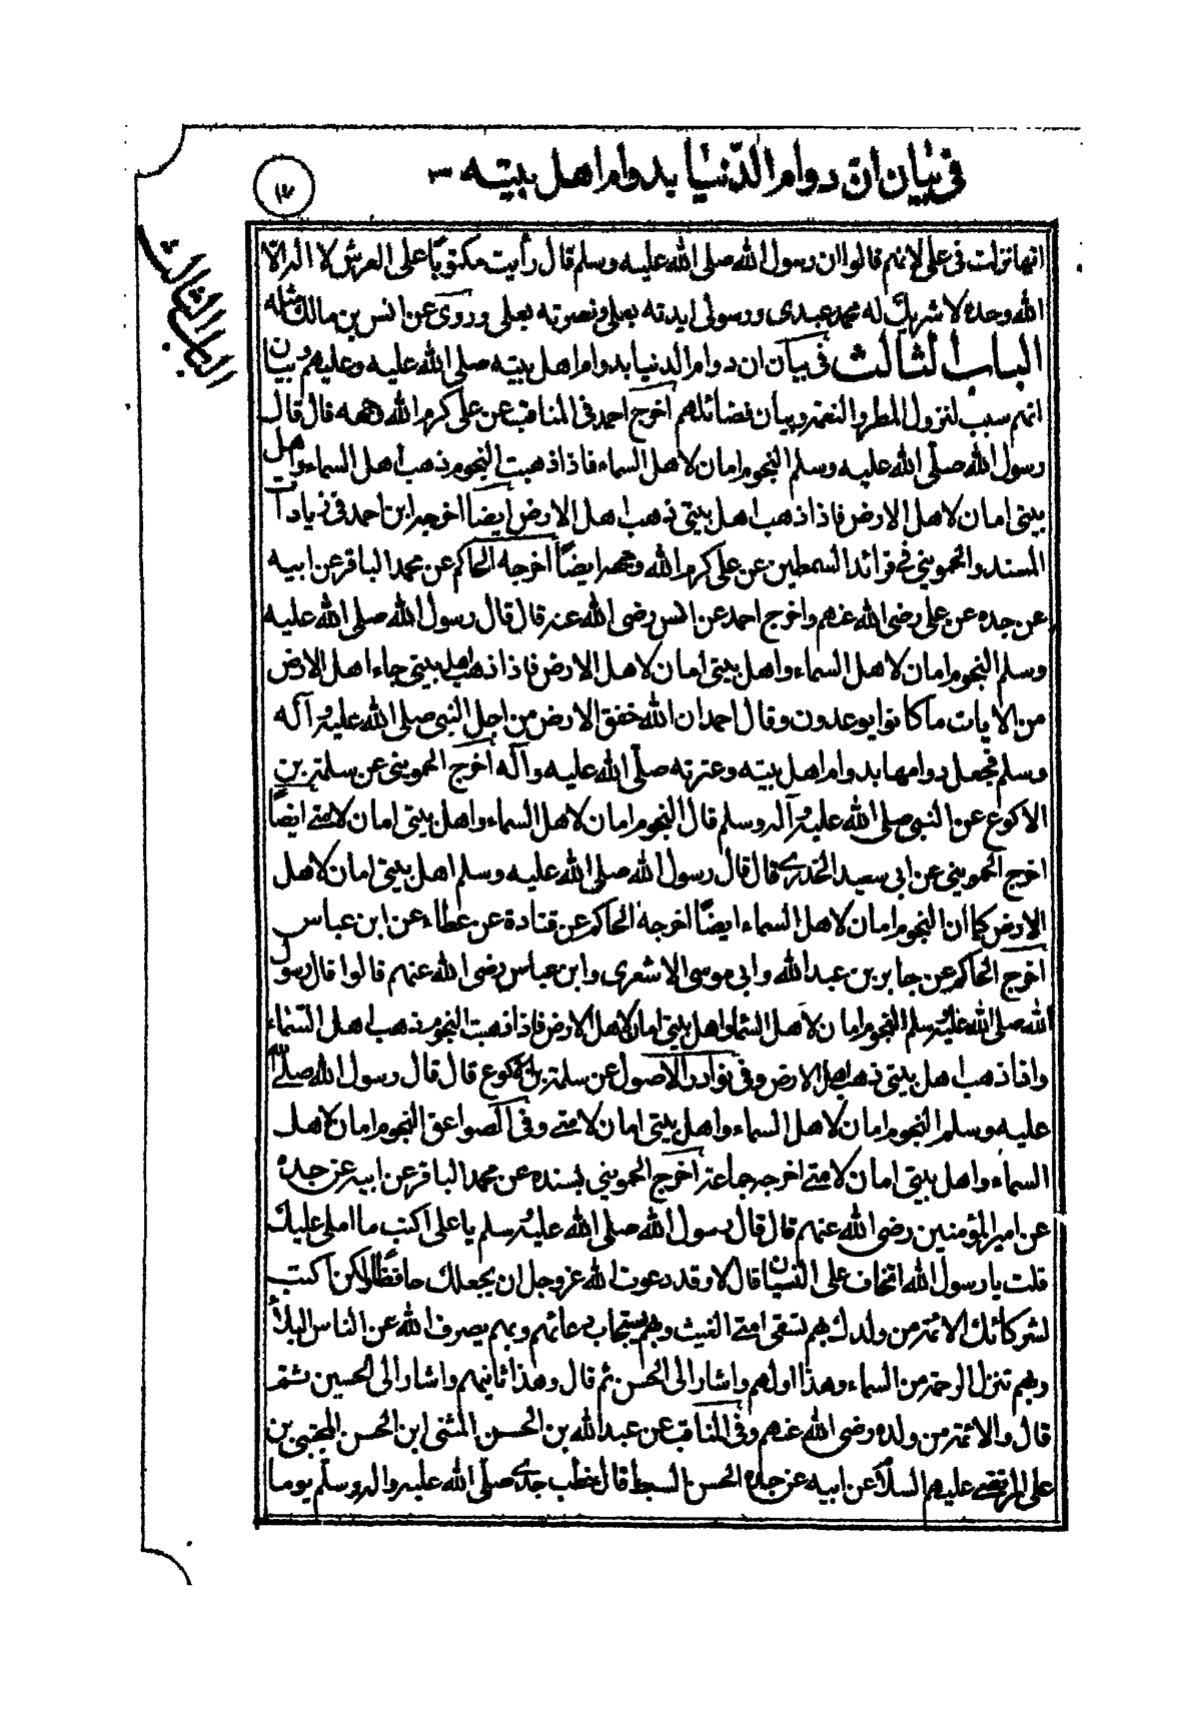 في بيان ان دوام الدّنيا بدوام اهل بيته ص
الباب الثالث
انها نزلت فى على لانهم قالوا ان رسول الله صلى الله عليه وسلم قال رأيت مكتوبًا على العرش لا اله الا
الله وحده لا شريك له محمد عبدى ورسولى ايدته بعلى ونصرته بعلى وروى عن انس بن مالك مثله
الباب الثالث فى بيان ان دوام الدنيا بدوام اهل بيته صلى الله عليه وعليهم وبيان
انهم سبب لنزول المطر والنعمة وبيان فضائلهم اخرج احمد فى المناقب عن على كرم الله وجهه قال قال
رسول الله صلّى الله عليه وسلم النجوم امان لاهل السماء فاذا ذهبت النجوم ذهب اهل السماء واهل
بيتى امان لاهل الارض فاذا ذهب اهل بيتى ذهب اهل الارض ايضا اخرجه ابن احمد فى زيادات
المسند والحموينى فى فرائد السمطين عن على كرم الله وجهه ايضاً اخرجه الحاكم عن محمد الباقر عن ابيه
عن جده عن على رضى الله عنهم واخرج احمد عن انس رضى الله عنه قال قال رسول الله صلى الله عليه
وسلم النجوم امان لاهل السماء واهل بيتى امان لاهل الارض فاذا ذهب اهل بيتى جاء اهل الارض
من الايات ما كانوا يوعدون وقال احمد ان الله خلق الارض من اجل النبى صلى الله عليه وآله
وسلم فجعل دوامها بدوام اهل بيته وعترته صلّى الله عليه وآله اخرج الحموينى عن سلمة بن
الاكوع عن النبى صلى الله عليه وآله وسلم قال النجوم امان لاهل السماء واهل بيتى امان لامتى ايضاً
اخرج الحموينى عن ابى سعيد الخدرى قال قال رسول الله صلى الله عليه وسلم اهل بيتى امان لاهل
الارض كما ان النجوم امان لاهل السماء ايضًا اخرجه الحاكم عن قتادة عن عطاء عن ابن عباس
اخرج الحاكم عن جابر بن عبد الله وابى موسى الاشعرى وابن عباس رضى الله عنهم قالوا قال رسول
الله صلى الله عليه وسلم النجوم امان لاهل السماء واهل بيتى امان لاهل الارض فاذا ذهبت النجوم ذهب اهل السماء
واذا ذهب اهل بيتى ذهب اهل الارض وفى نوادر الاصول عن سلمة بن الاكوع قال قال رسول الله صلى الله
عليه وسلم النجوم امان لاهل السماء واهل بيتى امان لامتى وفى الصواعق النجوم امان لاهل
السماء واهل بيتى امان لامتى اخرجه جماعة اخرج الحموينى بسنده عن محمد الباقر عن ابيه عن جده
عن امير المؤمنين رضى الله عنهم قال قال رسول الله صلى الله عليه وسلم يا على اكتب ما املى عليك
قلت يا رسول الله اتخاف على النسيان قال لا وقد دعوت الله عز وجل ان يجعلك حافظًا ولاكن اكتب
لشركائك الائمة من ولدك بهم تسقى امتى الغيث وبهم يستجاب دعائهم وبهم يصرف الله عن الناس البلاء
وبهم تنزل الرحمة من السماء وهذا اولهم واشار الى الحسن ثم قال وهذا ثانيهم واشار الى الحسين ثم
قال والائمة من ولده رضى الله عنهم وفى المناقب عن عبد الله بن الحسن المثنى ابن الحسن المجتبى بن
على المرتضى عليهم السلام عن ابيه عن جده الحسن السبط قال خطب جدى صلّى الله عليه واله وسلم يوما